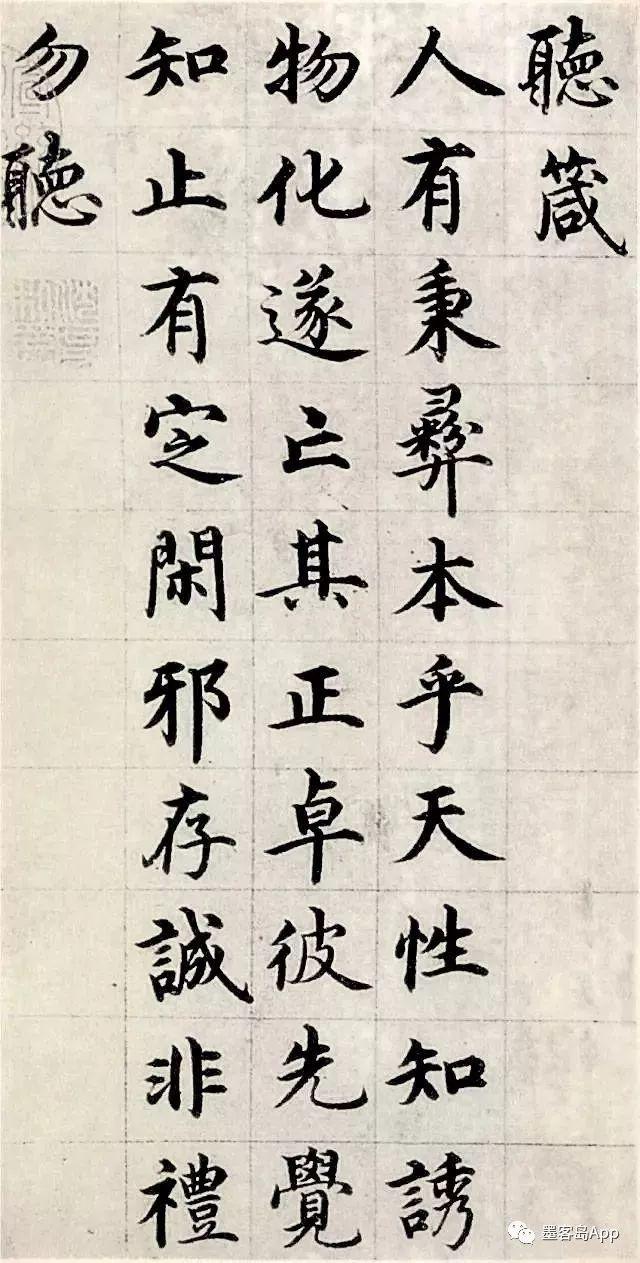 聽箴
人有秉彝本乎天性知誘
物化遂亡其正卓彼先覺
知止有定閑邪存誠非禮
勿聽
墨客岛App